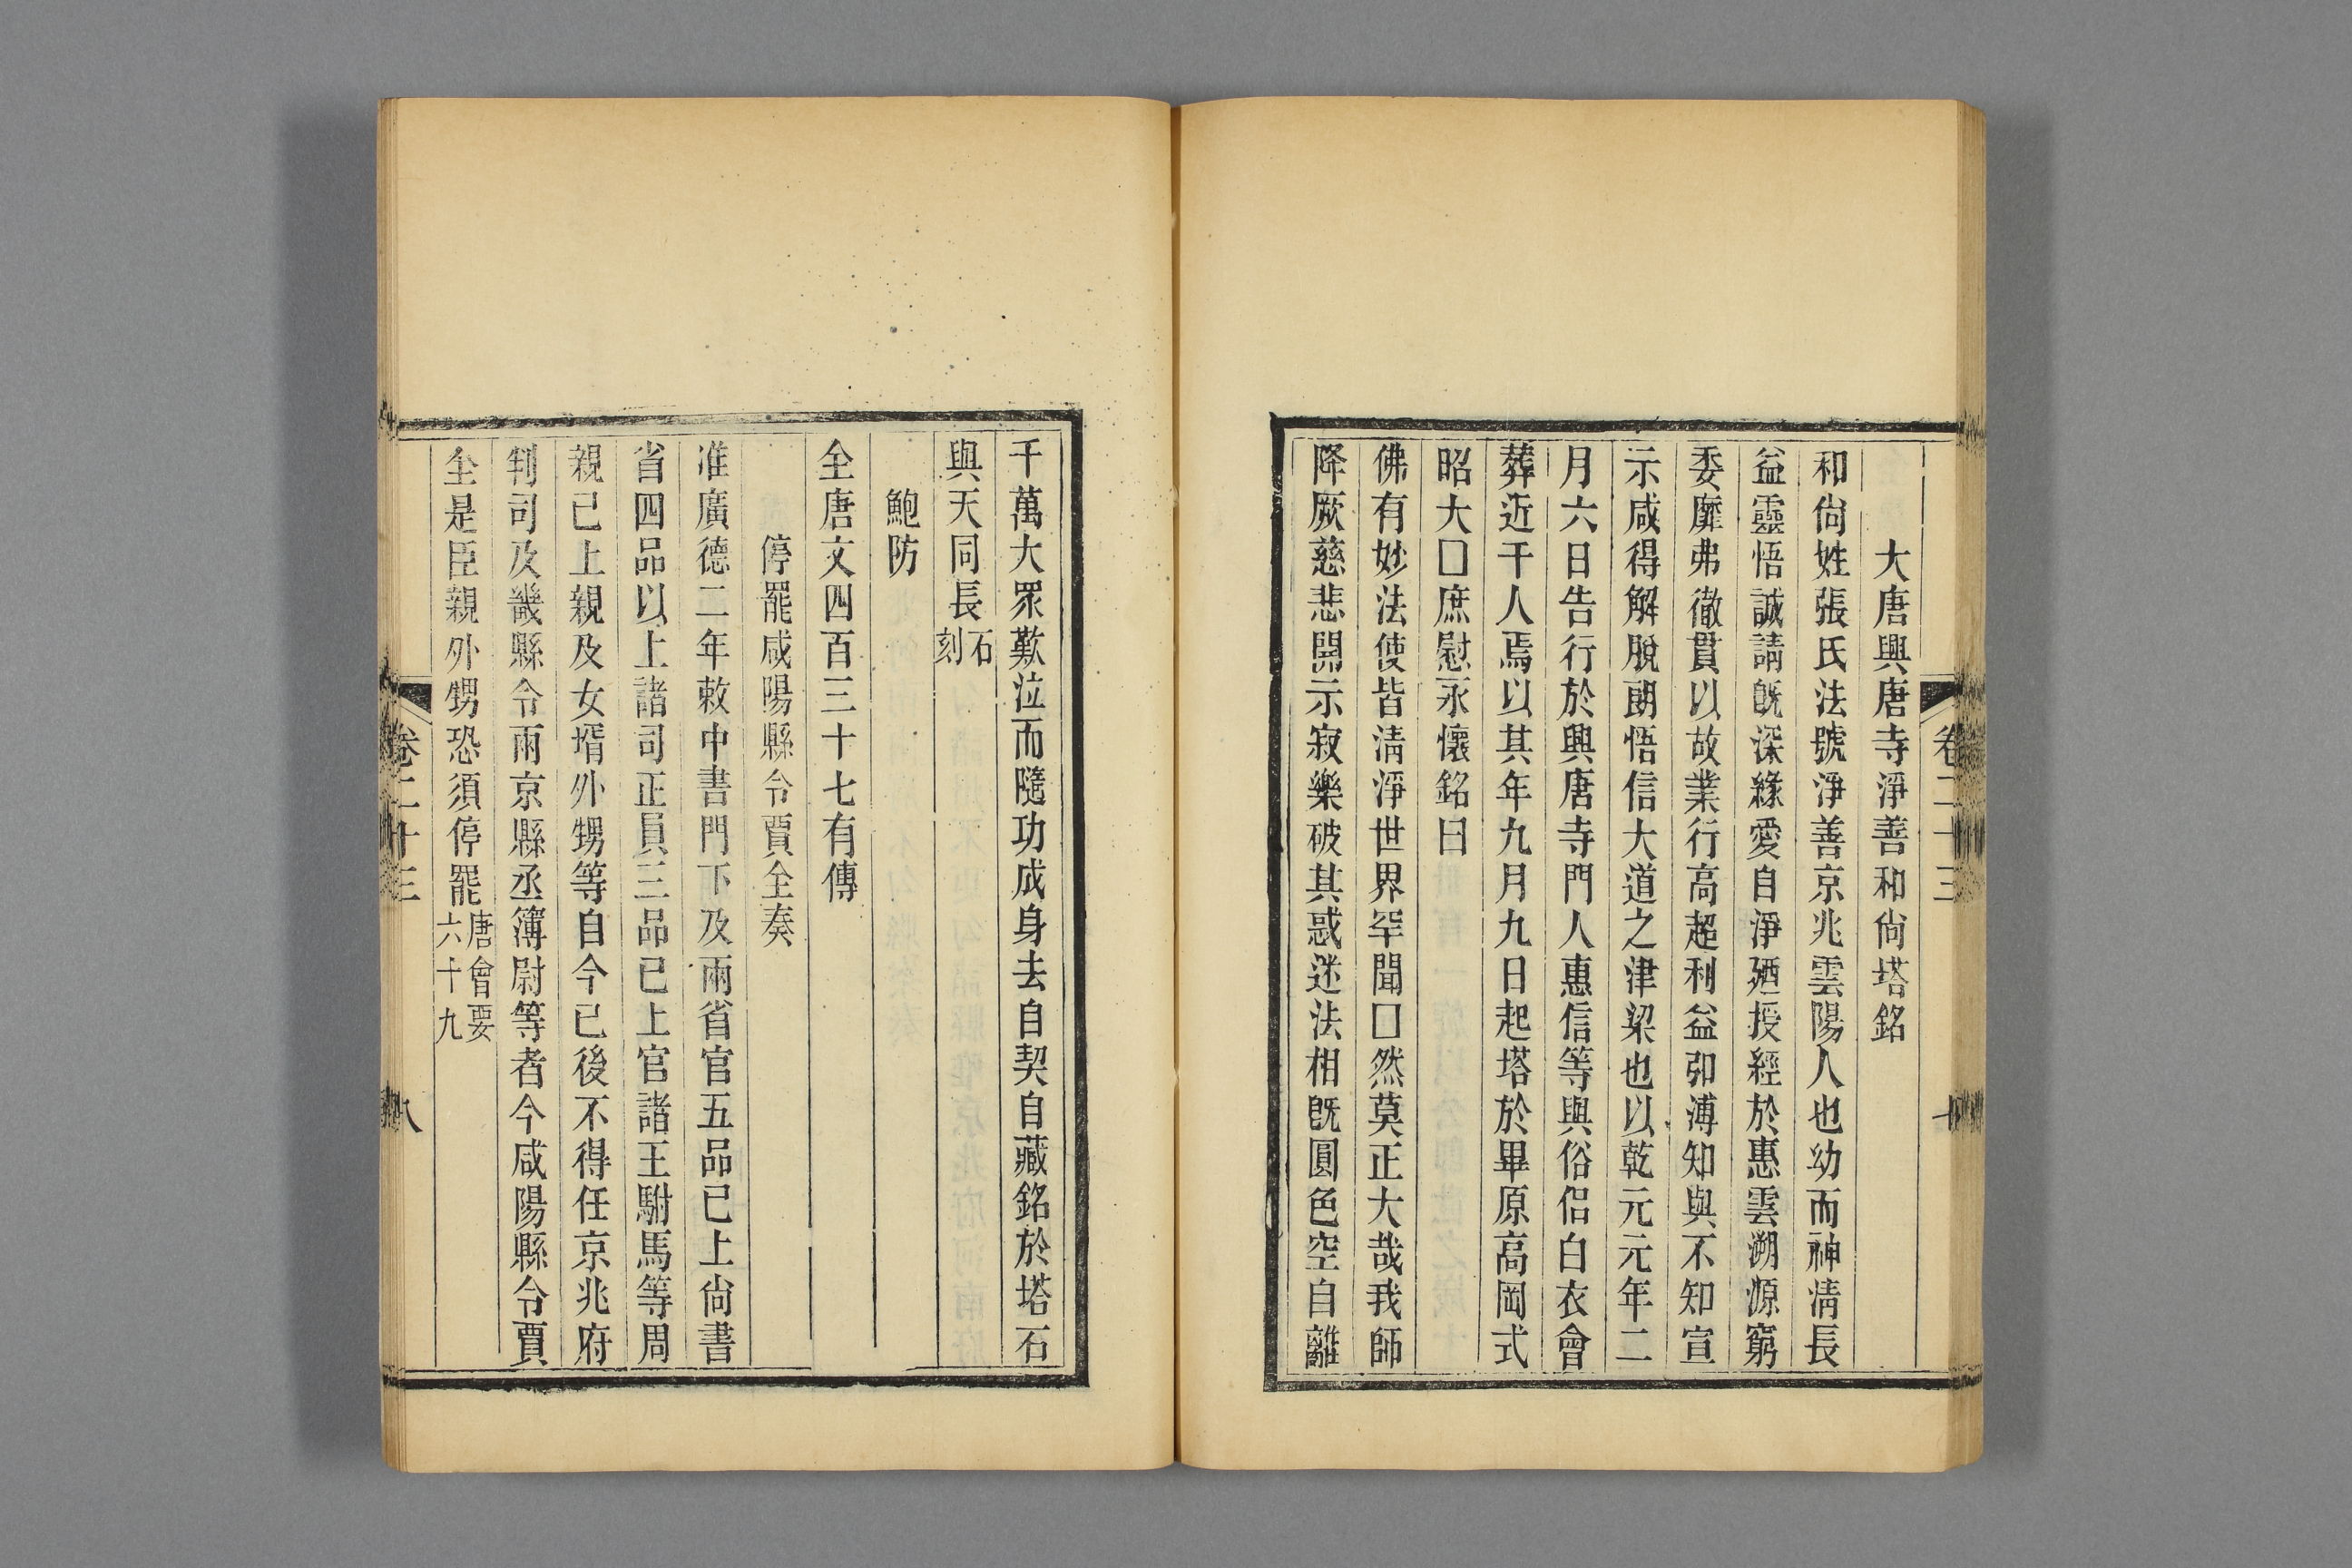 大唐興唐寺淨善和尙塔銘
和尙姓張氏法號淨善京兆雲陽人也幼而神淸長
益靈悟誠請旣深緣愛自淨廼授經於惠雲溯源窮
委靡弗徹貫以故業行高超利益卹溥知與不知宣
示咸得解脫頓悟信大道之津梁也以乾元元年二
月六日告行於興唐寺門人惠信等與俗侶白衣會
葬近千人焉以其年九月九日起塔於畢原高岡式
昭大□庶慰永懷銘曰
佛有妙法使皆淸淨世界罕聞□然莫正大哉我師
降厥慈悲開示寂樂破其惑迷法相旣圓色空自離
卷二十三
千萬大眾歎泣而隨功成身去自契自藏銘於塔石
與天同長石刻
鮑防
全唐文四百三十七有傳
停罷咸陽縣令賈全奏
准廣德二年敕中書門下及兩省官五品已上尙書
省四品以上諸司正員三品已上官諸王駙馬等周
親已上親及女壻外甥等自今已後不得任京兆府
判司及畿縣令兩京縣丞簿尉等者今咸陽縣令賈
全是臣親外甥恐須停罷唐會要六十九
卷二十三
八